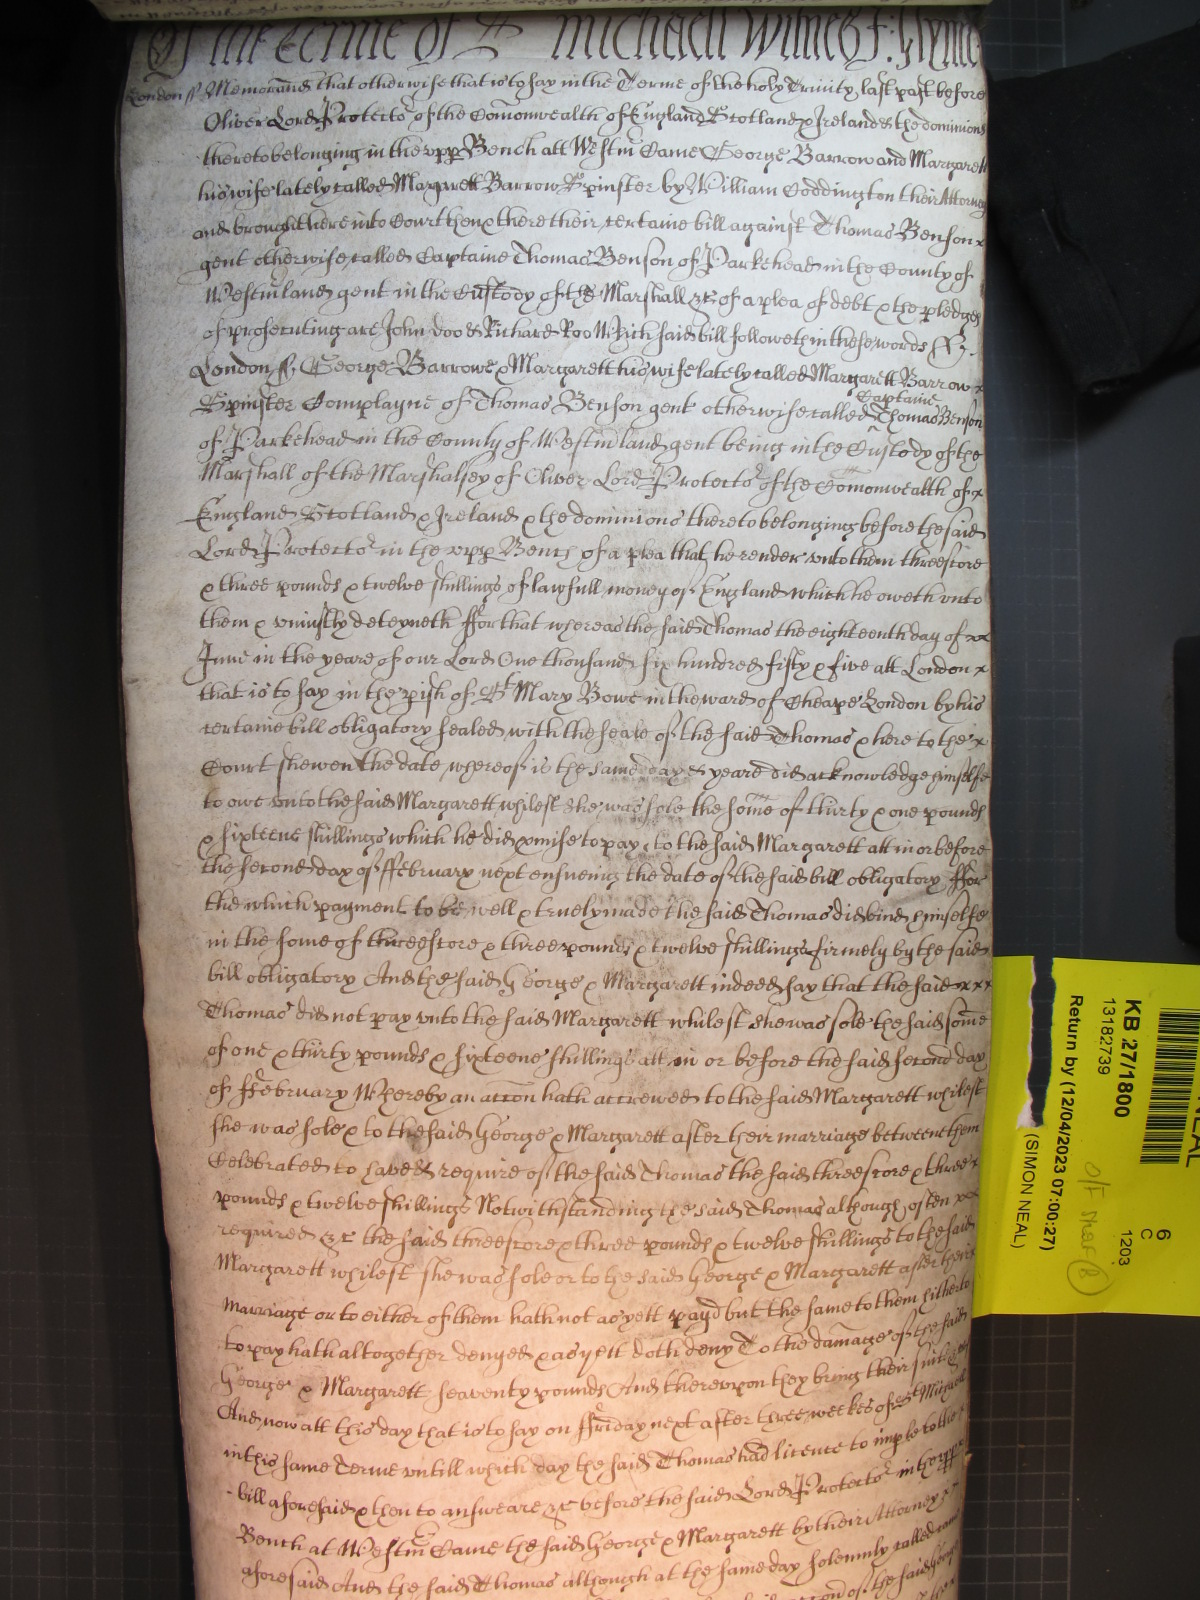 Of the Terme of St Michaell Witnes J: Glynne
London ss Memorand that otherwise that is to say in the Terme of the holy Trinity last past before
Oliver Lord Protector of the Comonwealth of England Scotland & Ireland & the dominions
thereto belonging in the upp Bench att Westm Came George Barrow and Margarett
his wife lately called Margarett Barrow Spinster by William Coddington their Attorny
and brought here into Court then & there their certaine bill against Thomas Benson x
gent otherwise called Captaine Thomas Benson of Parkehead in the County of
Westmland gent in the Custody of the Marshall &c of a plea of debt & the pledges
of prosecuting are John Doo & Richard Roo Which said bill followeth in these words ss
London ss George Barrowe & Margarett his wife lately called Margarett Barrow x
Captaine
Spinster Complayne of Thomas Benson gent otherwise called Thomas Benson
of Parkehead in the County of Westmland gent being in the Custody of the
Marshall of the Marshalsey of Oliver Lord Protector of the Comonwealth of x
England Scotland & Ireland & the dominions thereto belonging before the said
Lord Protector in the upp Bench of a plea that he render unto them threescore
& three pounds & twelve shillings of lawfull money of England which he oweth unto
them & uniustly deteyneth ffor that whereas the said Thomas the eighteenth day of xx
June in the yeare of our Lord One thousand six hundred fifty & five att London x
that is to say in the pish of St Mary Bowe in the ward of Cheape London by his
certaine bill obligatory sealed with the seale of the said Thomas & here to the x
Court shewen the date whereof is the same day & yeare did acknowledge himselfe
to owe unto the said Margarett whilest she was sole the some of thirty & one pounds
& sixteene shillings which he did pmise to pay to the said Margarett att in or before
the second day of ffebruary next ensueing the date of the said bill obligatory ffor
the which payment to be well & truely made the said Thomas did bind himselfe
in the some of threescore & three pounds & twelve shillings firmely by the said
bill obligatory And the said George & Margarett indeed say that the said xxx
Thomas did not pay unto the said Margarett whilest she was sole the said some
of one & thirty pounds & sixteene shillings att in or before the said second day
of ffebruary Whereby an accon hath accrewed to the said Margarett whilest
she was sole & to the said George & Margarett after their marriage betweene them
Celebrated to have & require of the said Thomas the said threescore & three x
pounds & twelve shillings Notwithstanding the said Thomas although often xx
required &c the said threescore & three pounds & twelve shillings to the said
Margarett whilest she was sole or to the said George & Margarett after their
marriage or to either of them hath not as yett payd but the same to them hitherto
to pay hath altogether denyed & as yett doth deny To the damage of the said
George & Margarett seaventy pounds And thereupon they bring their suit &c
And now att this day that is to say on ffriday next after three weekes of St Michaell
in this same Terme untill which day the said Thomas had licence to imple to the
bill aforesaid & then to answeare &c before the said Lord Protector in the upp
Bench at Westm Came the said George & Margarett by their Attorney x
aforesaid And the said Thomas although at the same day solemnly called came
of the said George
KB 27/1800
13182739
Return by (12/04/2023 07:00:27)
(SIMON NEAL)
6
C
1203
NEAL